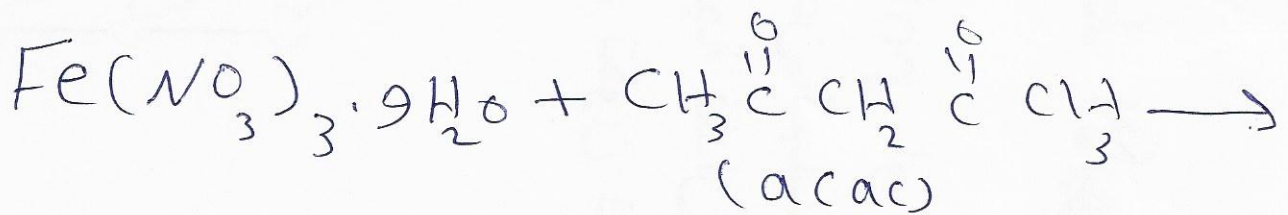 O O
Fe(NO3)3·9H2O + CH3 C CH2 C CH3 →
(acac)